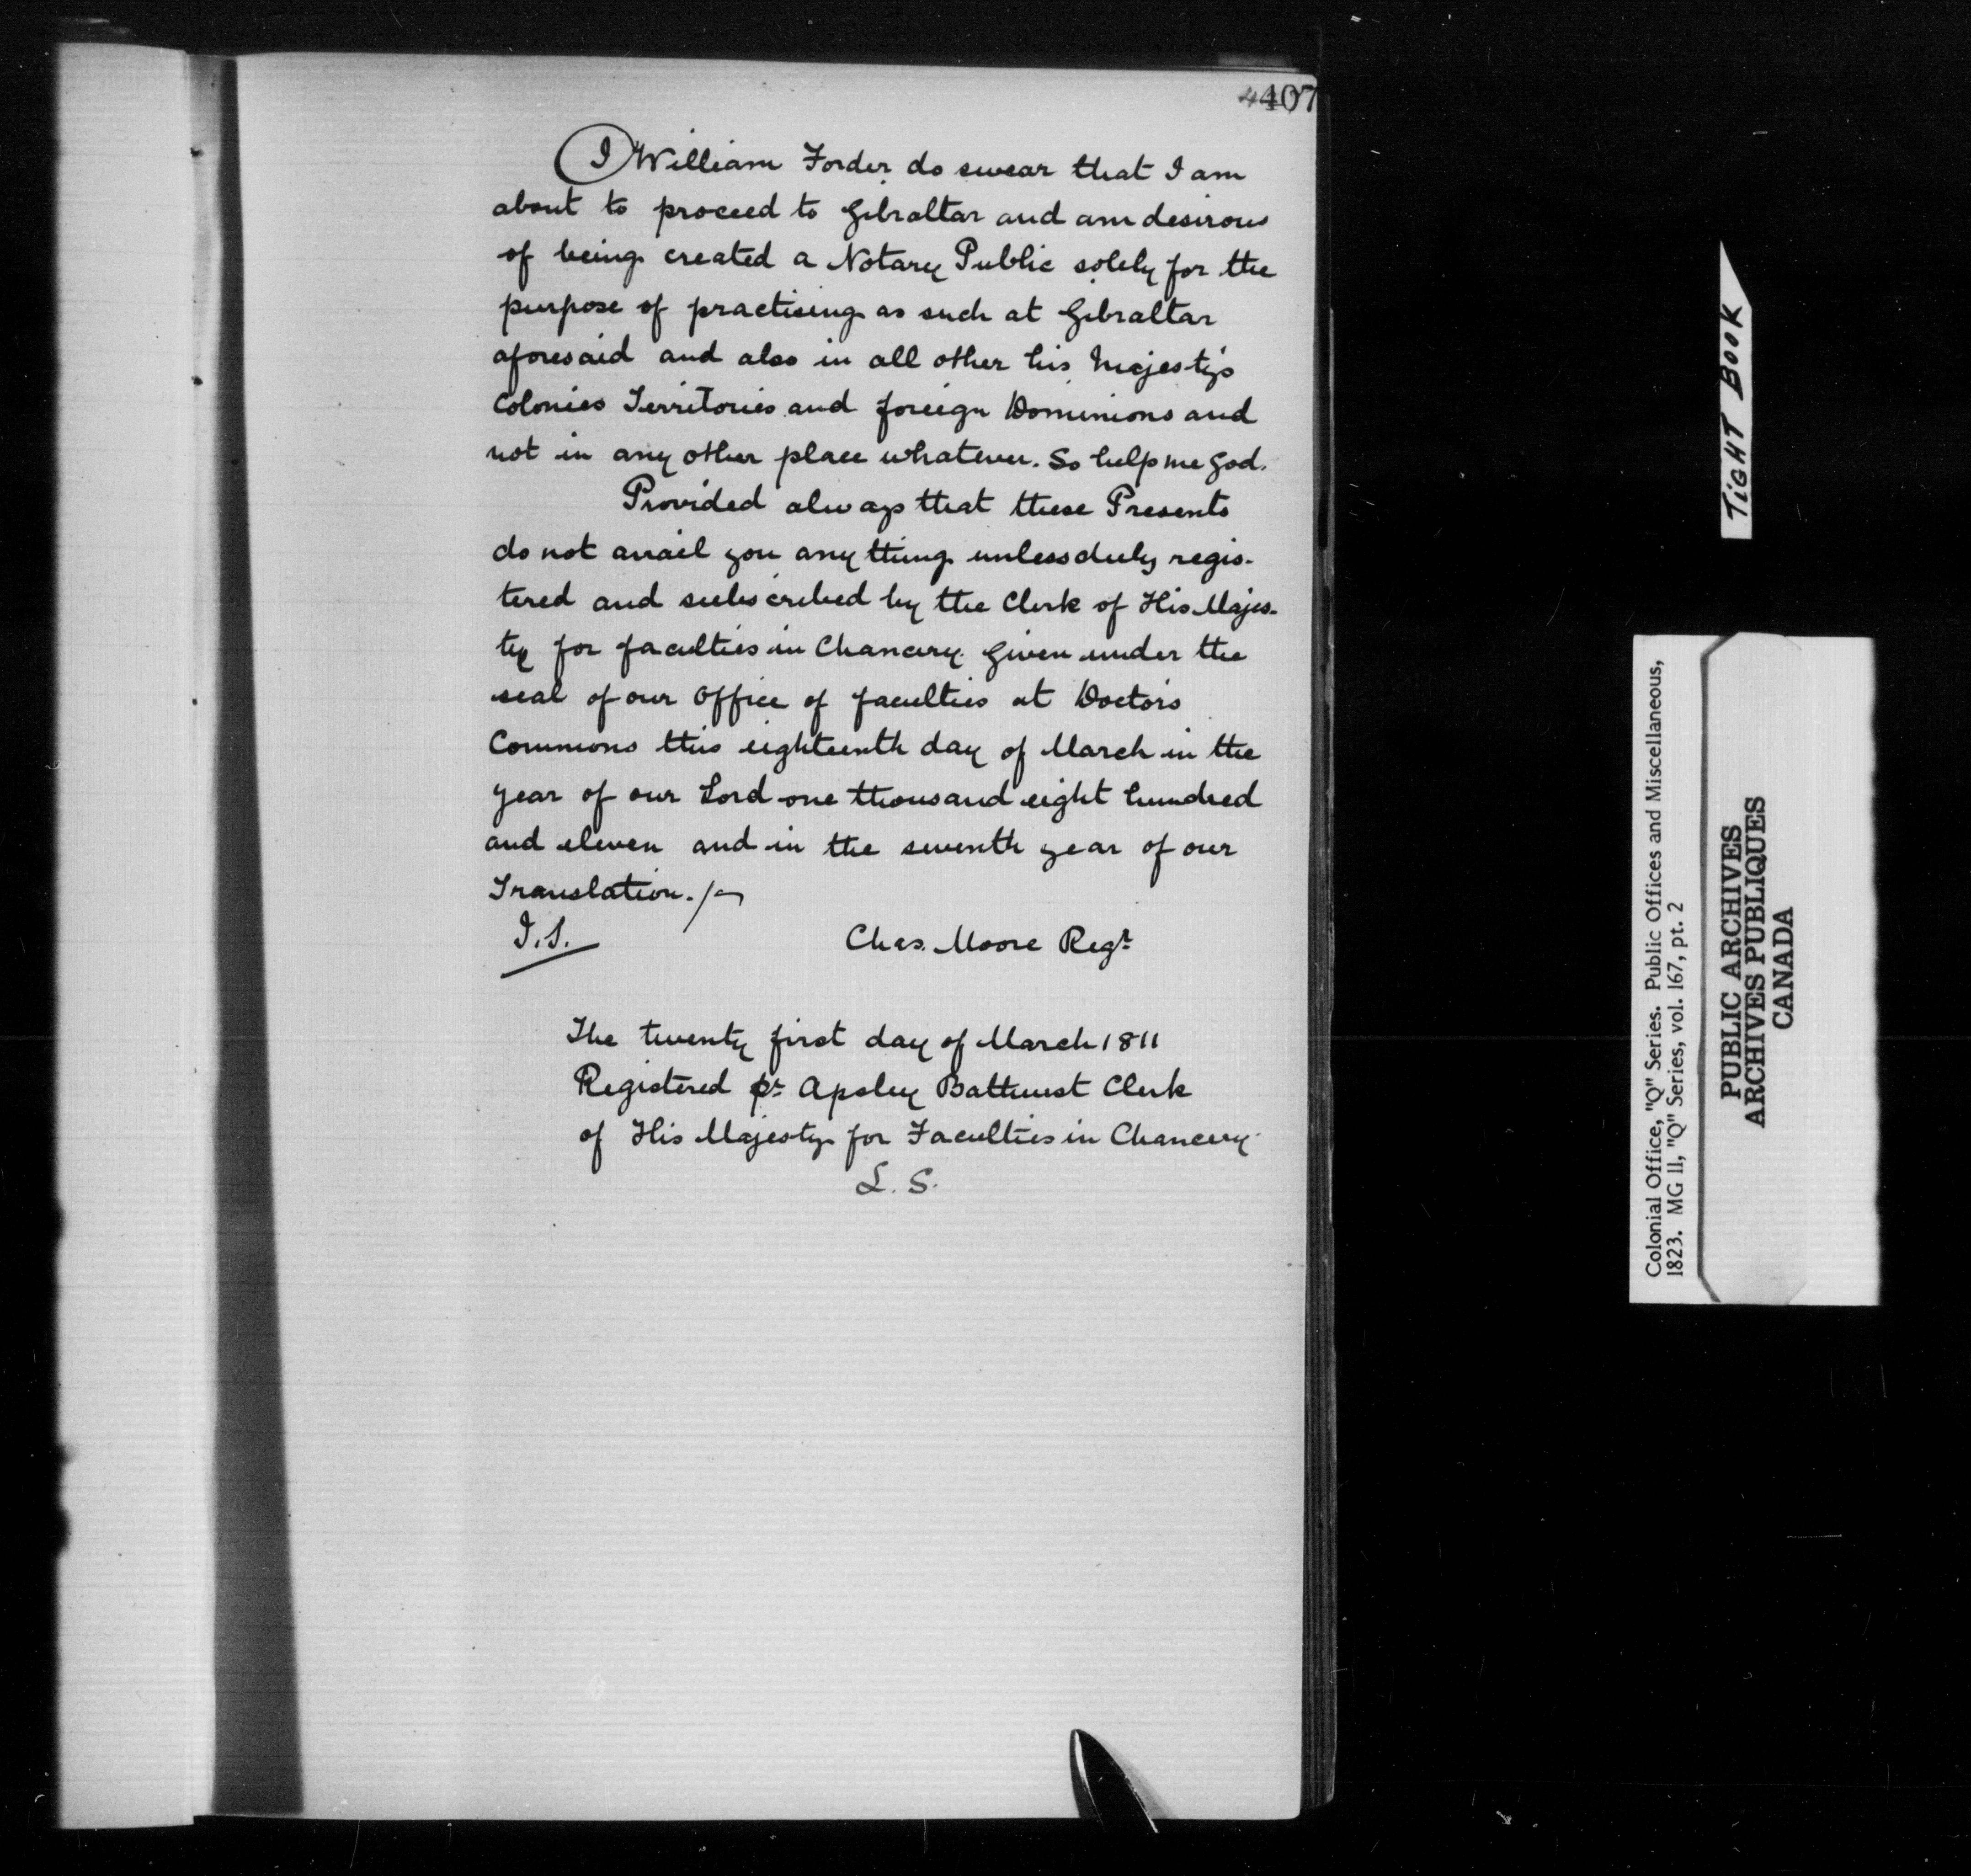 407
I William Forder do swear that I am
about to proceed to Gibraltar and am desirous
of being created a Notary Public solely for the
purpose of practising as such at Gibraltar
aforesaid and also in all other his Majesty's
Colonies Territories and foreign Dominions and
not in any other place whatever. So help me God.
Provided always that these Presents
do not avail you any thing unless duly regis-
tered and subscribed by the Clerk of His Majes-
ty for faculties in Chancery. Given under the
seal of our Office of faculties at Doctors
Commons this eighteenth day of March in the
year of our Lord one thousand eight hundred
and eleven and in the seventh year of our
Translation.
Chas. Moore Regr
The twenty first day of March 1811
Registered pr Apsley Bathurst Clerk
of His Majesty for Faculties in Chancery
L. S.
TIGHT BOOK
Colonial Office, "Q" Series. Public Offices and Miscellaneous,
1823. MG 11, "Q" Series, vol. 167, pt. 2
PUBLIC ARCHIVES
ARCHIVES PUBLIQUES
CANADA